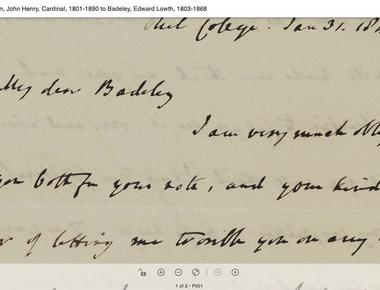 n, John Henry, Cardinal, 1801-1890 to Badeley, Edward Lowth, 1803-1868
College. Jan 31. 184
My dear Badeley
I am very much obli
you both for your note, and your kind
of letting me trouble you on any
1 of 2 • P001